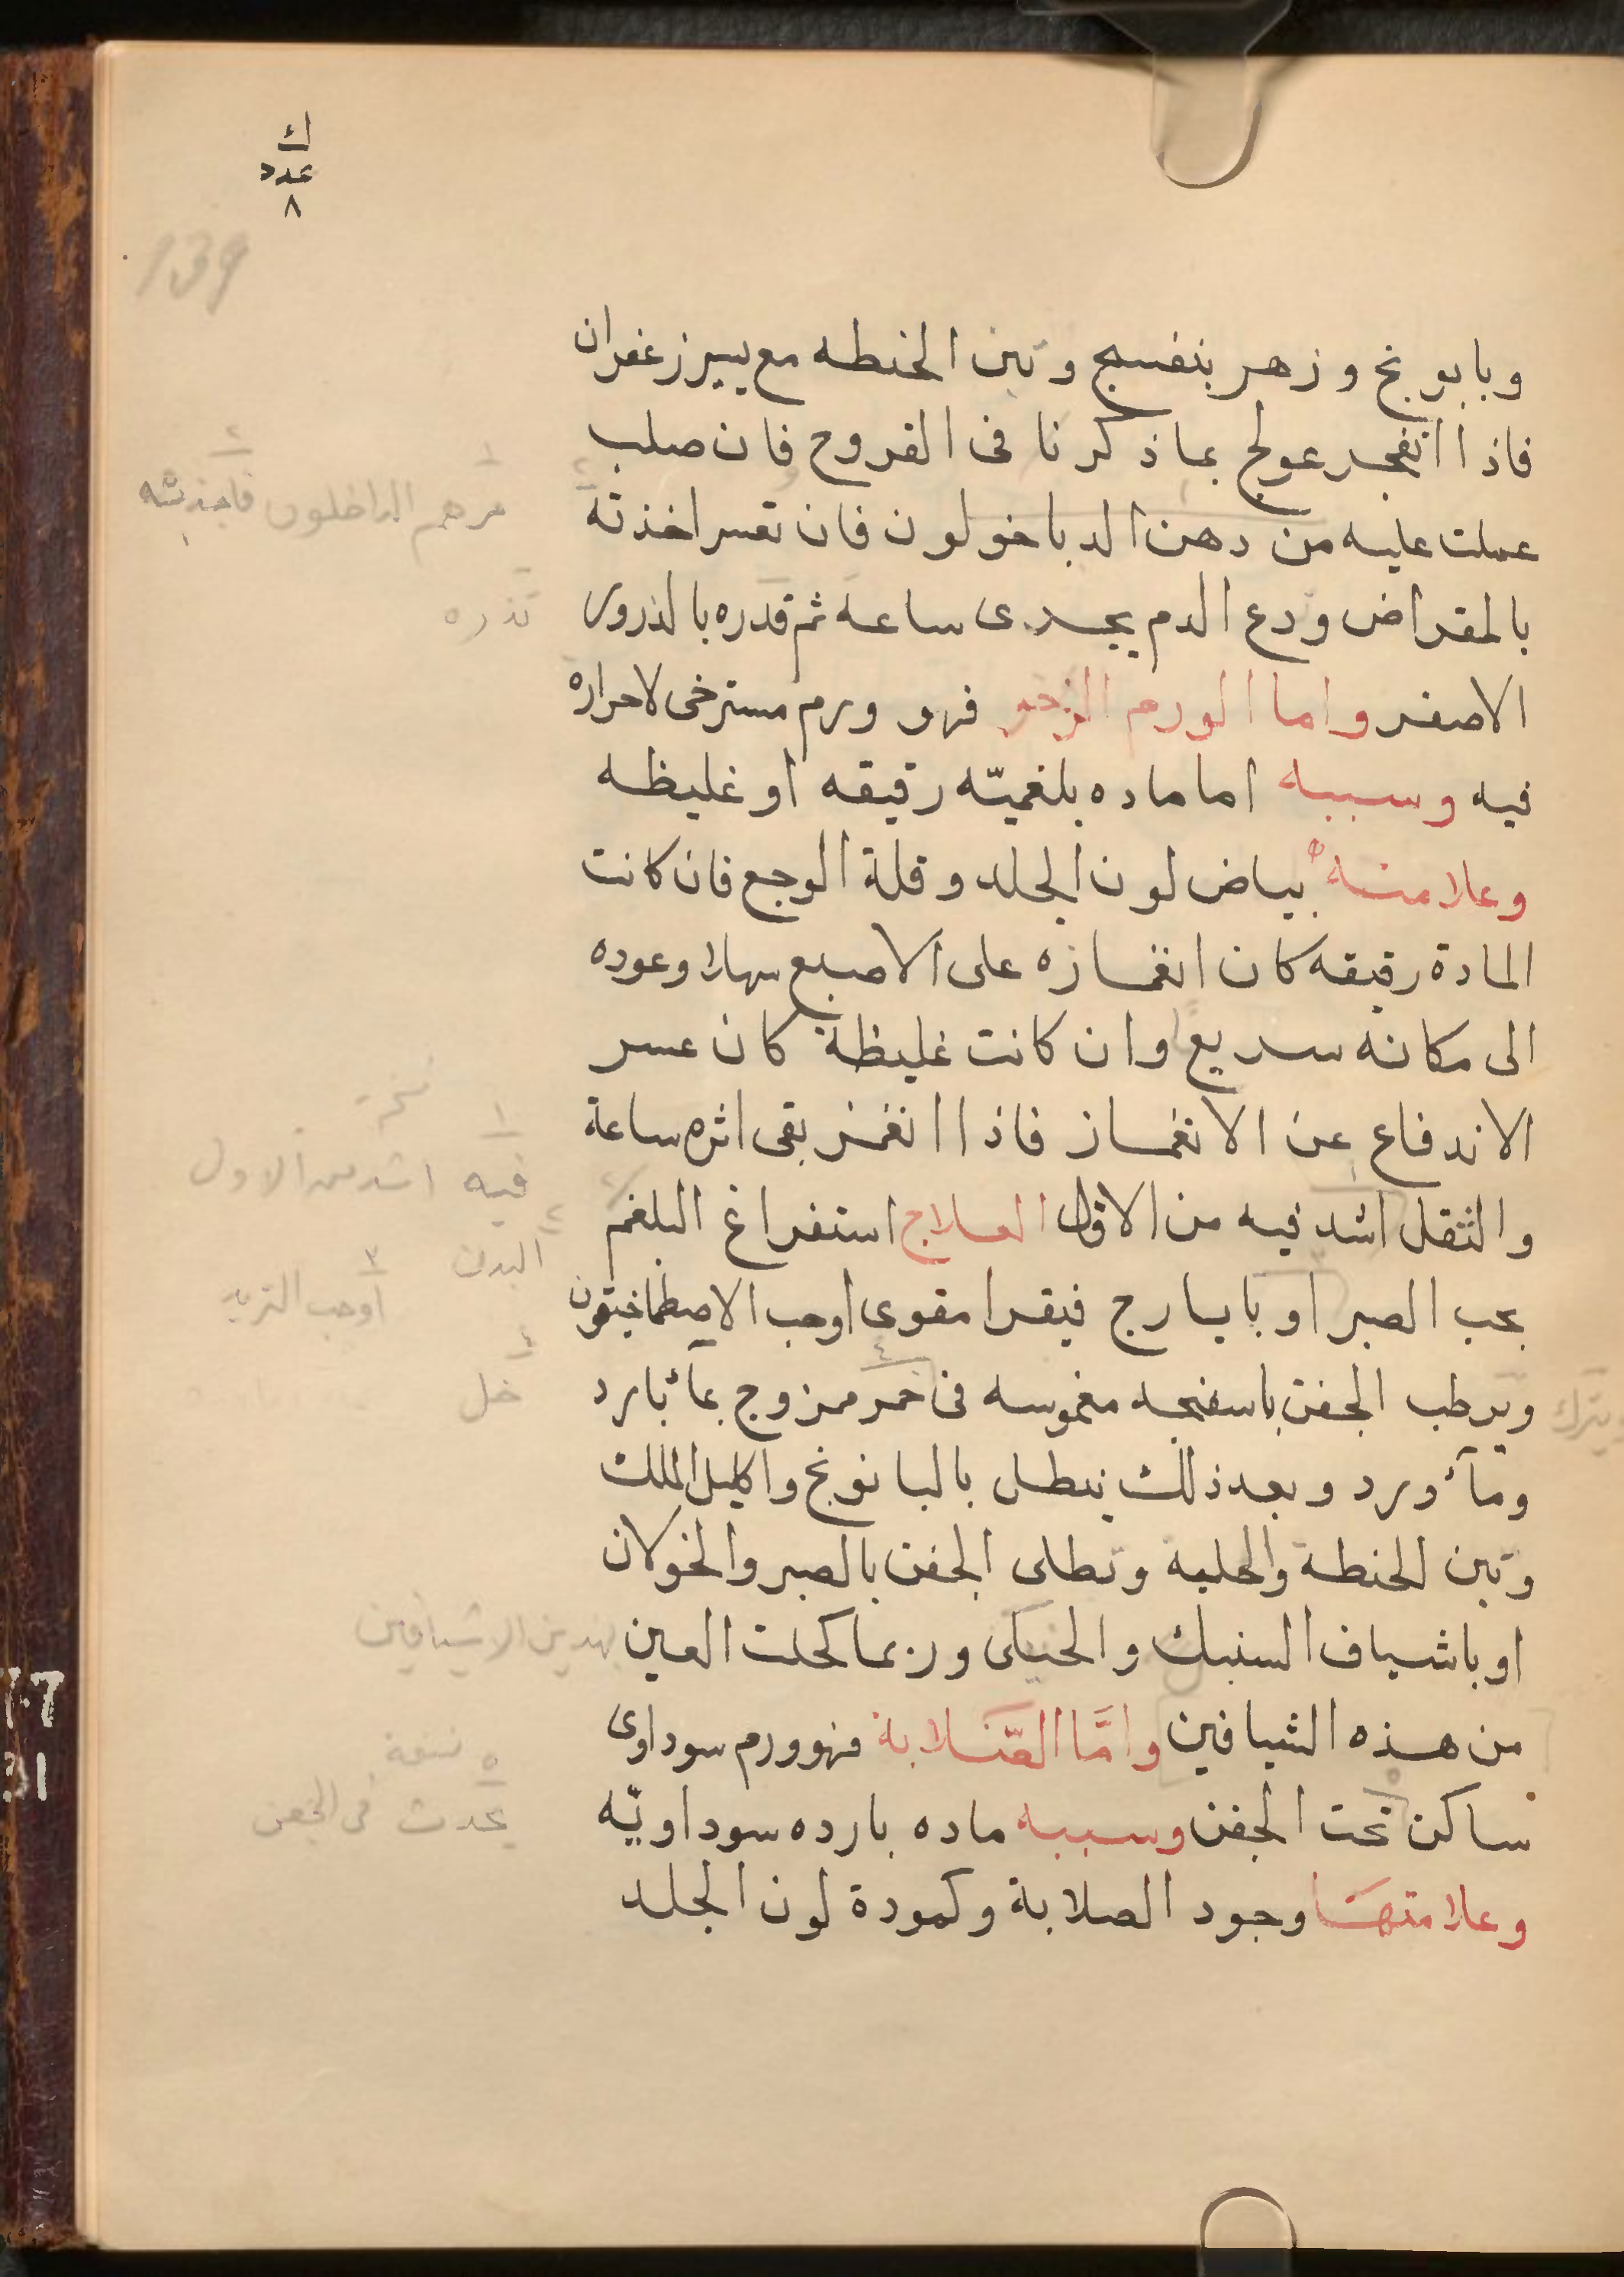 ك
عدد
٨
139
وبابونج وزهر بنفسج وتبن الحنطه مع يسير زعفران
فاذا انفجر عولج بماذكرنا فى القروح فان صلب
عملت عليه من دهن الدباخولون فان تعسر اخذته
بالمقراض ودع الدم يجرى ساعة ثم قدره بالذرور
الاصفر واما الورم الرخو فهو ورم مسترخى لاحراره
فيه وسببه اماماده بلغميّه رقيقه او غليظه
وعلامته بياض لون الجلد وقلة الوجع فان كانت
المادة رقيقه كان انغمازه على الاصبع سهلا وعوده
الى مكانه سريع وان كانت غليظة كان عسر
الاندفاع عن الانغماز فاذا انغمز بقى اثره ساعة
والثقل اشد فيه من الاول العلاج استفراغ البلغم
بحب الصبر او بايارج فيقرا مقوى اوحب الاصطماخيقون
ويرطب الجفن باسفنجه مغموسه فى خمر ممزوج بمآء بارد
ومآء ورد وبعد ذلك ينطل بالبانونج واكليل الملك
وتبن الحنطة والحلبة وتطلى الجفن بالصبر والخولان
او باشياف السنبك والحنكى وربما كحلت العين
من هذه الشيافين وامَّا الصّلابة فهو ورم سوداوى
ساكن تحت الجفن وسببه ماده بارده سوداويّه
وعلامتها وجود الصلابة وكمودة لون الجلد
١ مرهم الداخلون ٢ فاجذبته
تذره
١ فيه اشد من الاول
٢ البدن ٣ اوحب التربد
٤ خل
ويترك
بهدين الاشيافين
نسخة
٥ يحدث فى الجفن